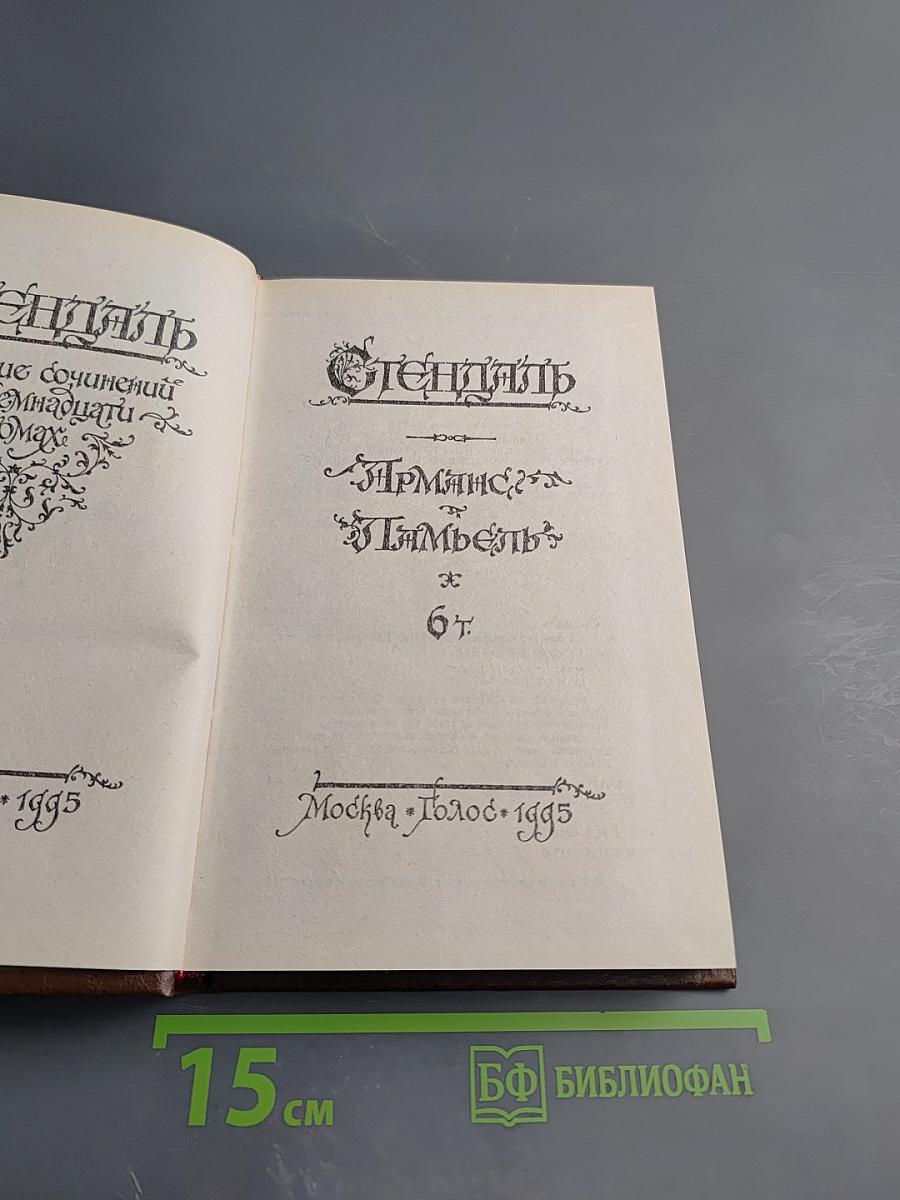 ЕНДАЛЬ
ие сочинений
емнадцати
омах
* 1995
Стендаль
Арманс
Ламьель
6 т.
Москва * Голос * 1995
15 см
БФ БИБЛИОФАН